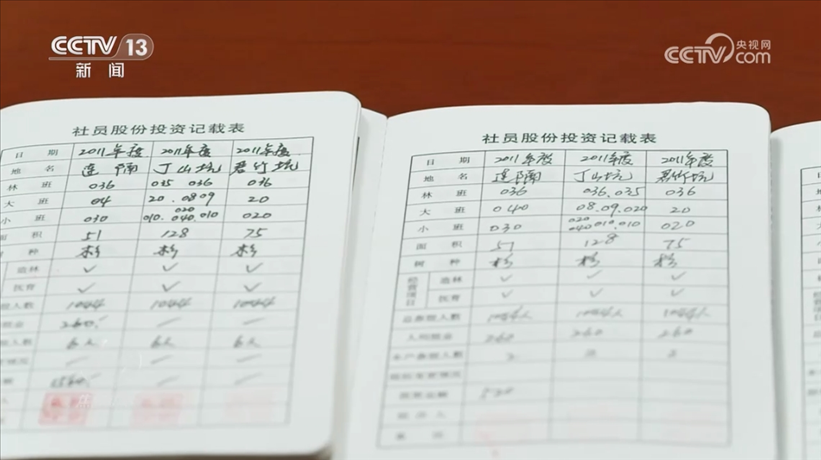 CCTV 13
新闻
央视网
CCTV.com
社员股份投资记载表
日 期 2011年度 2011年度 2011年度
地 名 莲隔 丁山坑 君竹坑
林 班 036 035 036 036
大 班 04 20.0809 20
小 班 030 020 010.040.010 020
面 积 51 128 75
树 种 杉 杉 杉
造林 ✓ ✓ ✓
抚育 ✓ ✓ ✓
股人数 1044 1044 1044
股金 260.
人数 6人 6人 6人
1560.
社员股份投资记载表
日 期 2011年度 2011年度 2011年度
地 名 莲隔 丁山坑 君竹坑
林 班 036 036.035 036
大 班 040 08.09.020 20
小 班 030 020 040 010.010 020
面 积 51 128 75
树 种 杉 杉 杉
经营项目 造林 ✓ ✓ ✓
抚育 ✓ ✓ ✓
总参股人数 1044人 1044人 1044人
人均股金 260 260 260
本户参股人数 2
股权变更情况
投资金额 520
经办人